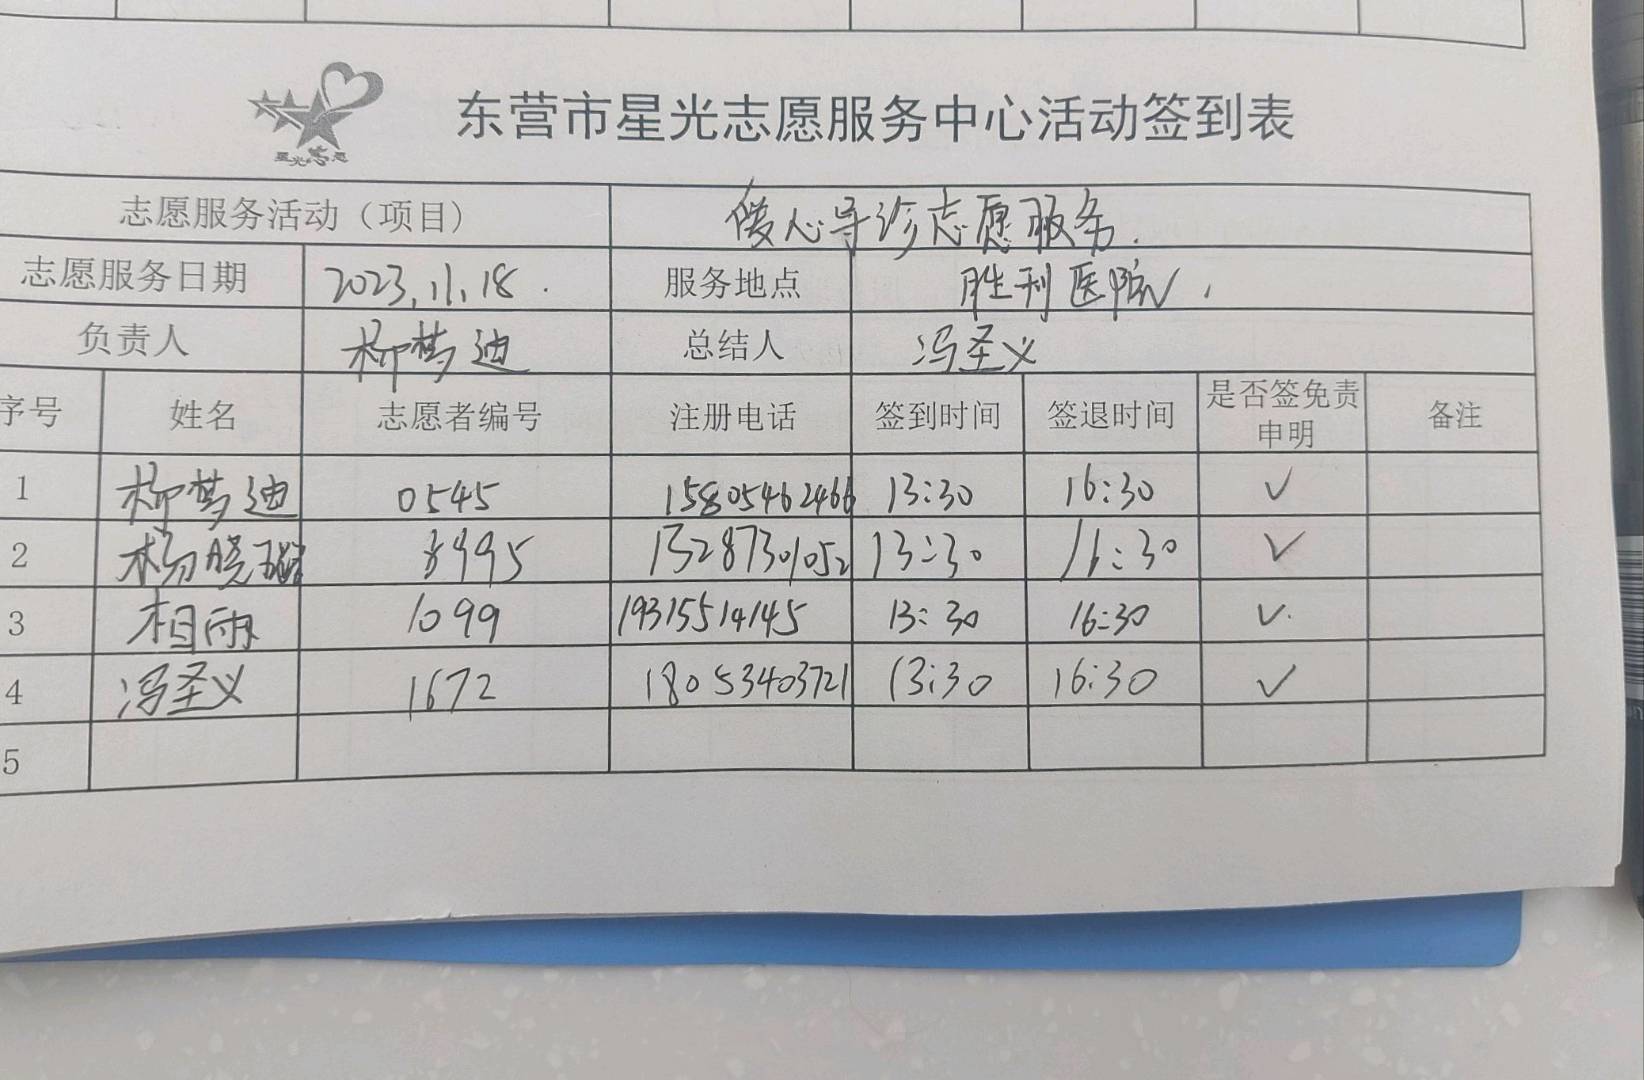 星光志愿
东营市星光志愿服务中心活动签到表
志愿服务活动（项目） 暖心导诊志愿服务.
志愿服务日期 2023.11.18. 服务地点 胜利医院.
负责人 柳梦迪 总结人 冯圣义
序号 姓名 志愿者编号 注册电话 签到时间 签退时间 是否签免责申明 备注
1 柳梦迪 0545 15805462466 13:30 16:30 ✓
2 杨晓 8995 13287301052 13:30 16:30 ✓
3 相雨 1099 19315514145 13:30 16:30 ✓.
4 冯圣义 1672 18053403721 13:30 16:30 ✓
5